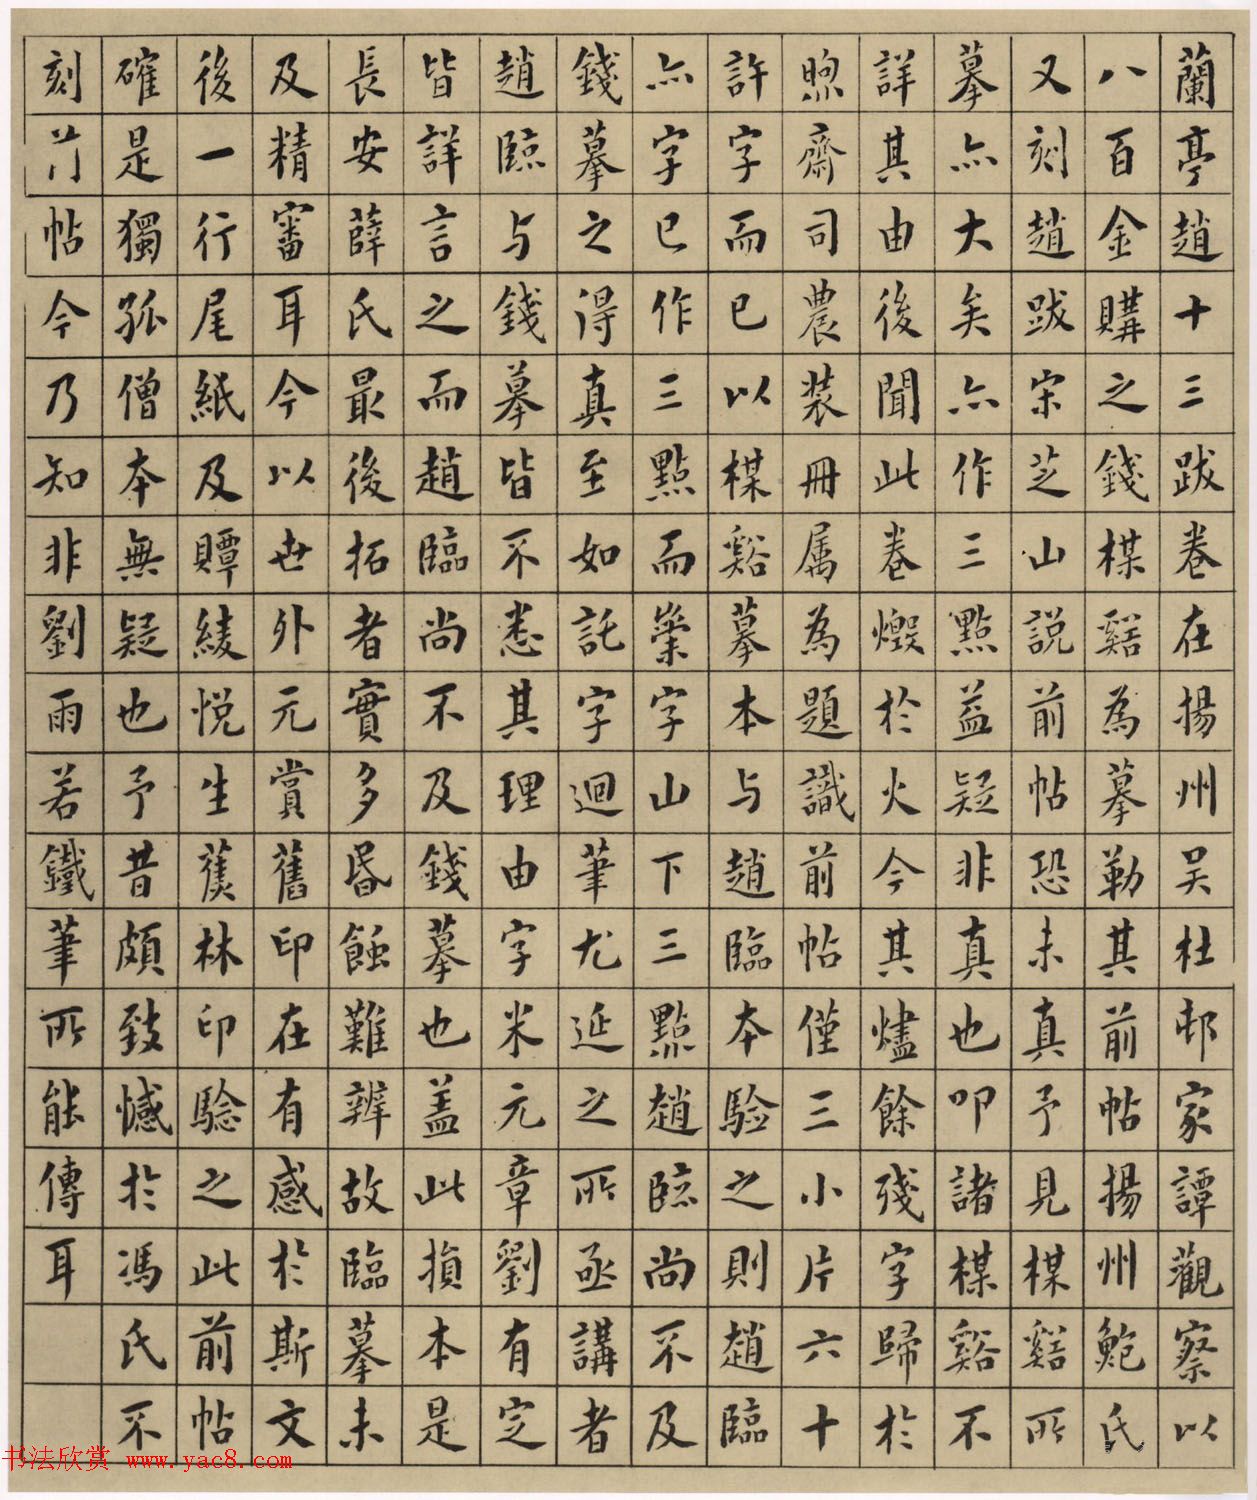 蘭亭趙十三跋卷在揚州吴杜邨家譚觀察以
八百金購之錢楳谿為摹勒其前帖揚州鮑氏
又刻趙跋宋芝山説前帖恐未真予見楳谿所
摹亦大矣亦作三點益疑非真也叩諸楳谿不
詳其由後聞此卷燬於火今其燼餘殘字歸於
煦齋司農装冊属為題識前帖僅三小片六十
許字而已以楳谿摹本与趙臨本驗之則趙臨
亦字已作三點而崇字山下三點趙臨尚不及
錢摹之得真至如託字迴筆尤延之所亟講者
趙臨与錢摹皆不悉其理由字米元章劉有定
皆詳言之而趙臨尚不及錢摹也盖此損本是
長安薛氏最後拓者實多昬蝕難辨故臨摹未
及精審耳今以世外元賞舊印在有感於斯文
後一行尾紙及贉綾悦生蕉林印騐之此前帖
確是獨孤僧本無疑也予昔頗致憾於馮氏不
刻前帖今乃知非劉雨若鐵筆所能傳耳
书法欣赏 www.yac8.com